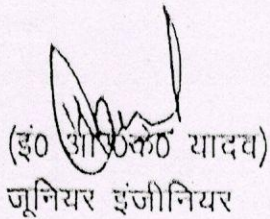 (इं0 आर0के0 यादव)
जूनियर इंजीनियर